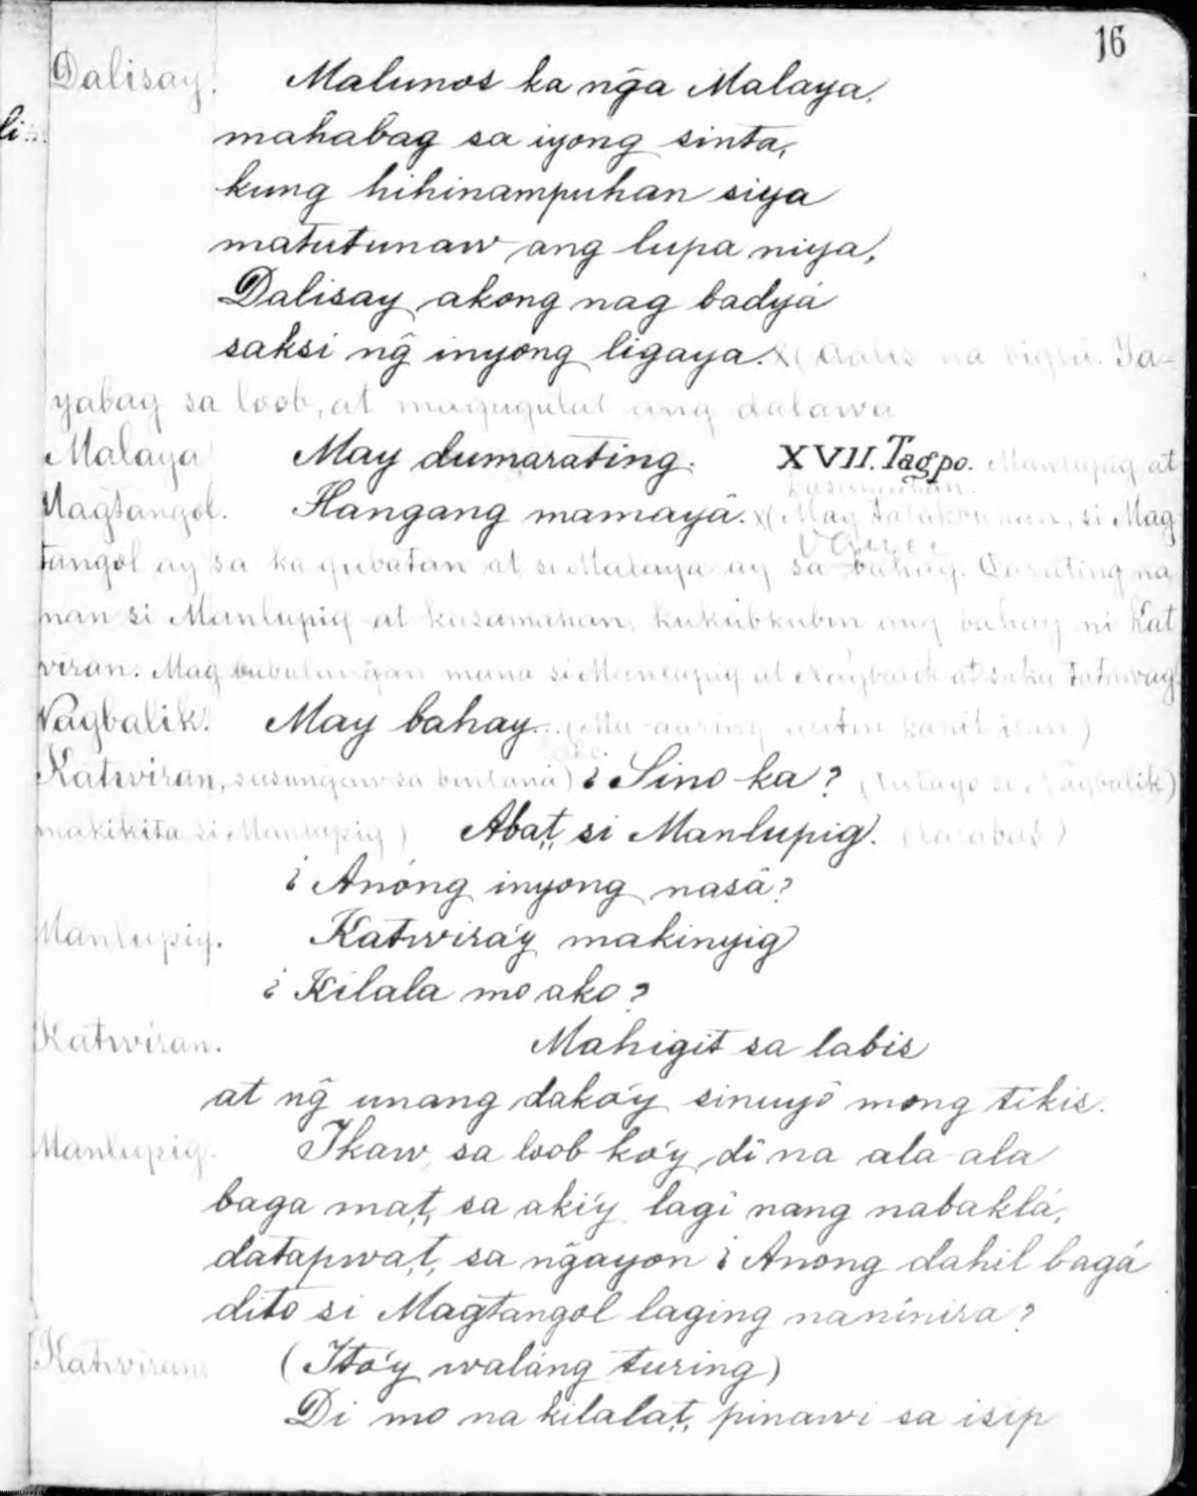 16
Dalisay. Malunos ka ñga Malaya.
li
mahabag sa iyong sinta,
kung hihinampuhan siya
matutunaw ang lupa niya,
Dalisay akong nag badyá
saksi ng̃ inyong ligaya. x( aalis na biglâ. Ya-
yabag sa loob, at magugulat ang dalawa
Malaya May dumarating. XVII. Tagpo. Manlupig at
kasamahan.
Magtangol. Hangang mamayâ. x( May talakbuhan, si Mag
tangol ay sa ka gubatan at si Malaya ay sa bahay. Darating na
man si Manlupig at kasamahan, kukubkubin ang bahay ni Kat
wiran. Mag bubulungan muna si Manlupig at Nagbalik at saka tatawag
Nagbalik. May bahay...
Katwiran, susungaw sa bintana) ¿ Sino ka? (tutago si Nagbalik)
makikita si Manlupig) Abaṭ si Manlupig.
¿ Anóng inyong nasâ?
Manlupig. Katwira'y makinyig
¿ Kilala mo ako?
Katwiran. Mahigit sa labis
at ng̃ unang dako'y sinuyô mong tikis.
Manlupig. Ikaw sa loob ko'y di na ala-ala
baga maṭ, sa aki'y lagi nang nabaklá,
datapwaṭ, sa ñgayon ¿ Anong dahil bagá
dito si Magtangol laging naninira?
Katwiran (Ito'y waláng turing)
Di mo na kilalaṭ, pinawi sa isip